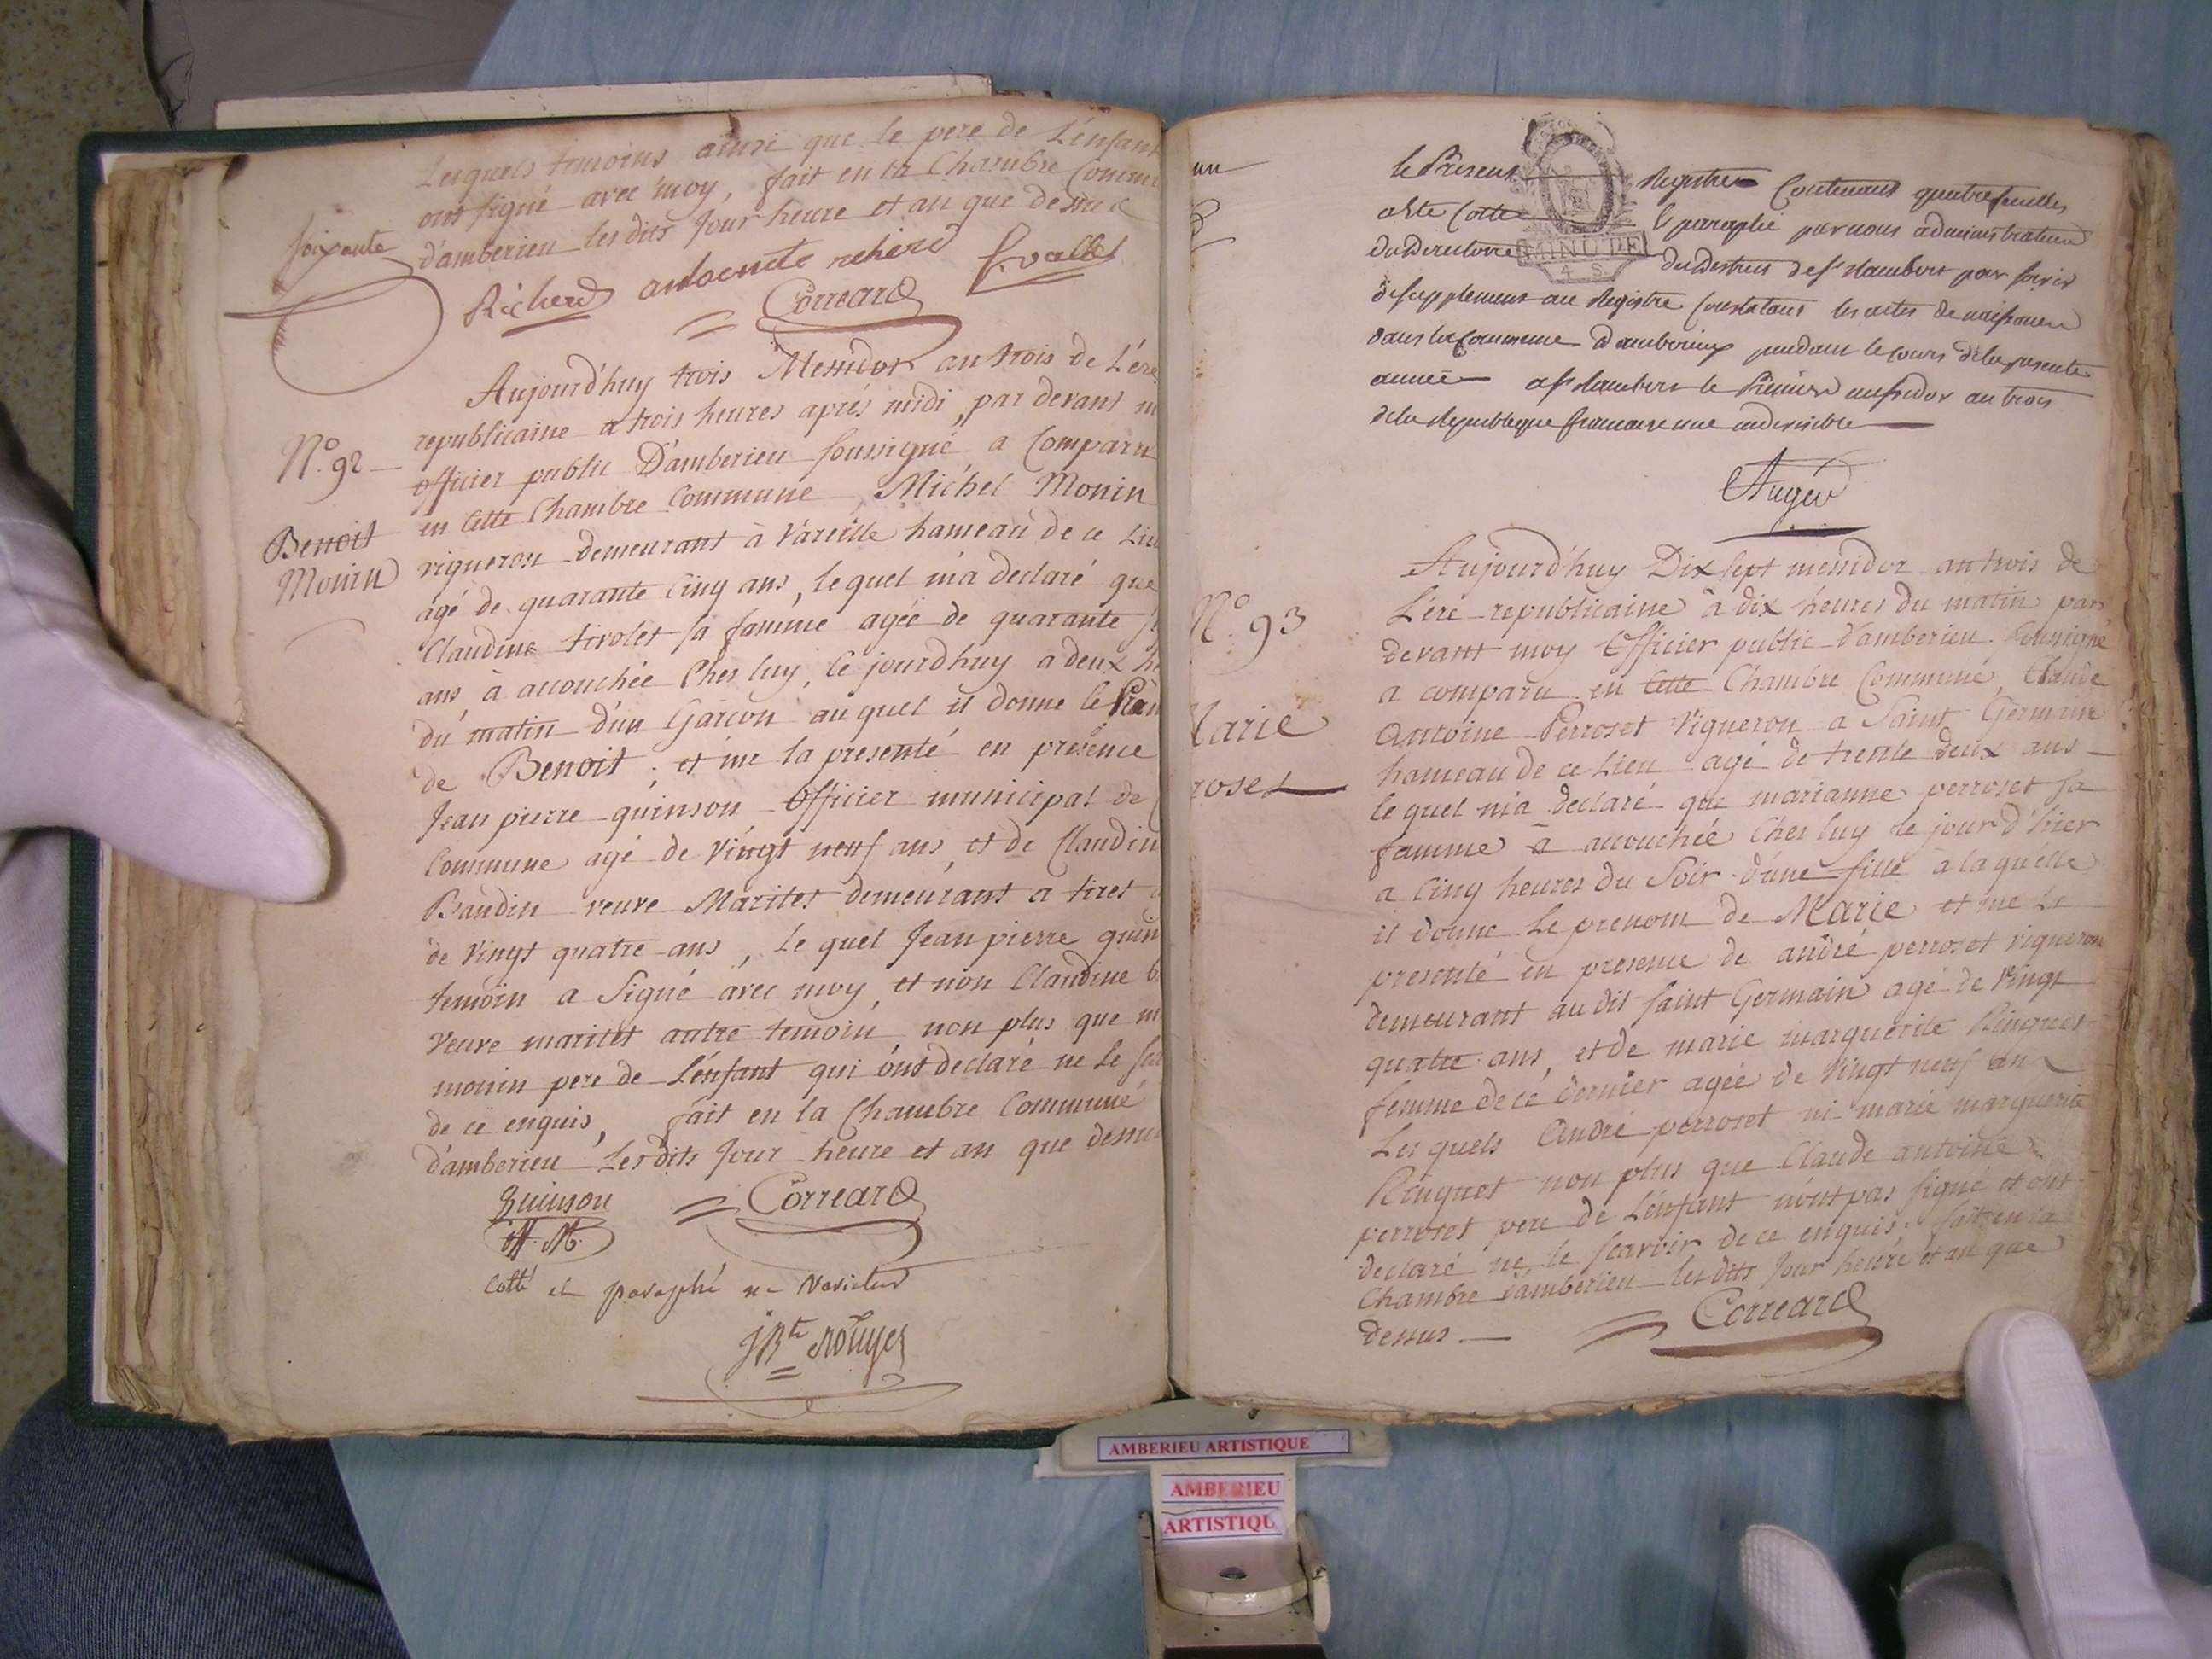 Lesquels temoins ainsi que le pere de L'enfant
ont signé avec moy, fait en la Chambre Commu
d'amberieu les dits Jour heure et an que dessus
soixante
Richerd antoenite richerd f. vallet
Correard
Aujourd'huy trois Messidor an trois de L'ére
republicaine a trois heures aprés midi, par devant m
officier public D'amberieu soussigné a Comparu
en Cette Chambre Commune, Michel Monin
vigneron demeurant à Vareille hameau de ce Lieu
agé de quarante Cinq ans, le quel m'a declaré que
Claudine tirolet sa famme agée de quarante
ans, à accouchée Ches luy, ce jourdhuy a deux he
du matin d'un Garcon au quel il donne le Pren
de Benoit; et me la presenté en présence
Jean pierre quinson Officier municipal de C
Commune agé de Vingt neuf ans, et de Claudin
Baudin veuve Maritet demeurant a tiret
de Vingt quatre ans, Le quel Jean pierre quin
temoin a Signé avec moy, et non Claudine b
veuve maritet autre temoin, non plus que m
monin pere de L'énfant qui ónt declaré ne le sca
de ce enquis, fait en la Chambre Commune
d'amberieu Les dits Jour heure et an que dessu
N.° 92
Benoit
Monin
Quinson Correard
off. M.
Cotté et paraphé ne Varietur
J Bte Rouyer
le Présent Registre Contenant quatre feuilles
a Ete Cotte & paraphé par nous administrateur
du Directoire du District de St Rambert pour servir
de supplement au Registre Constatant les actes de naissance
dans la Commune d'amberieux pendant le cours de la presente
année a St Rambert le Premier messidor an trois
de la Republique francaise une indivisible
Augerd
MINUTE
4 S.
un
Aujourd'huy Dix sept messidor an trois de
L'ére republicaine à dix heures du matin par
devant moy Officier public d'amberieu Soussigné
a comparu en Cette Chambre Commune, Claude
Antoine Perroset Vigneron a Saint Germain
hameau de ce Lieu agé de trente deux ans
le quel m'a declaré que marianne perroset sa
famme à accouchée Ches luy le jour d'hier
a Cinq heures du Soir d'une fille à la quelle
il donne Le prenom de Marie et me L'a
presenté en presence de andré perroset vigneron
demeurant au dit saint Germain agé de Vingt
quatre ans, et de marie marguerite Ringuet
femme de ce dernier agée de Vingt neuf an
Les quels André perroset ni marie marguerite
Ringuet non plus que Claude antoine
perroset pere de L'énfant n'ont pas signé et ont
declaré ne le scavoir de ce enquis. fait en la
Chambre d'amberieu les dits Jour heure et an que
dessus
N.° 93
arie
roset
Correard
AMBERIEU ARTISTIQUE
AMBERIEU
ARTISTIQU